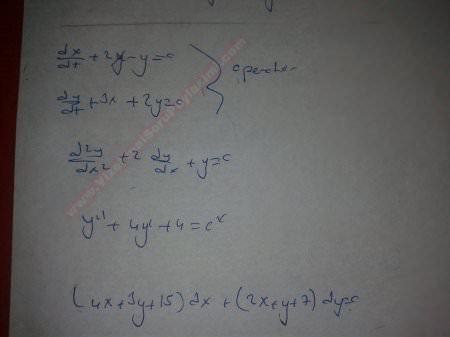 dx/dt + 2x - y = 0
dy/dt + 3x + 2y = 0 } operatör
d²y/dx² + 2 dy/dx + y = 0
y'' + 4y' + 4 = eˣ
(4x+3y+15)dx + (2x+y+7)dy=0